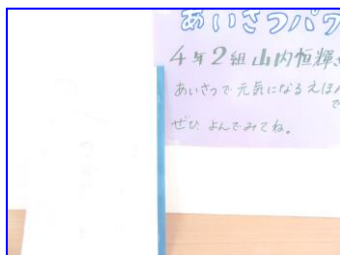 あいさつパワ
4年2組山内恒輝
あいさつで元気になるえほん
で
ぜひ よんでみてね。